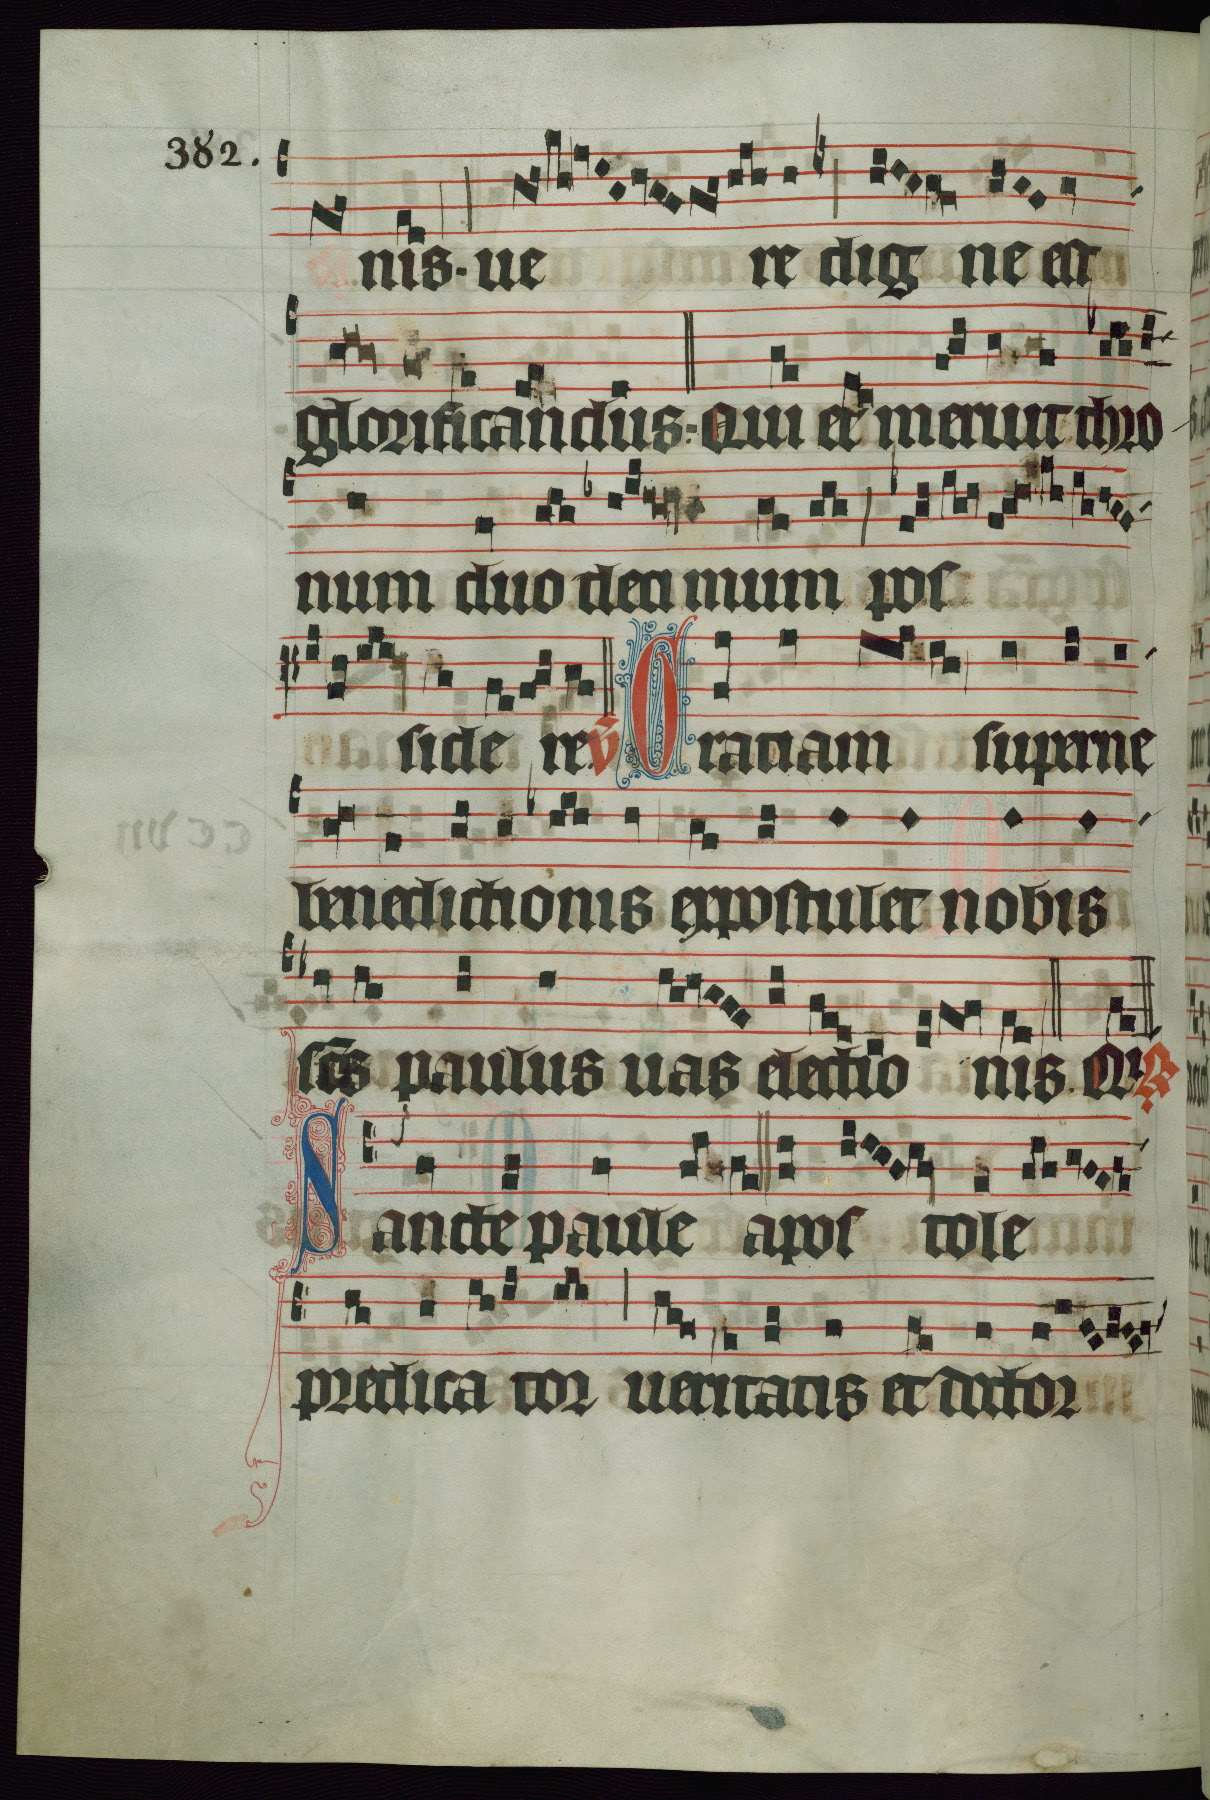 382.
nis. ue re dig ne est
glorificandus: Qui et meruit thro
num duo deci mum pos
side re. V̄ Gratiam superne
benedictionis expostulet nobis
scs paulus uas electio nis. Qui R
Sancte paule apos tole
predica tor ueritatis et doctor